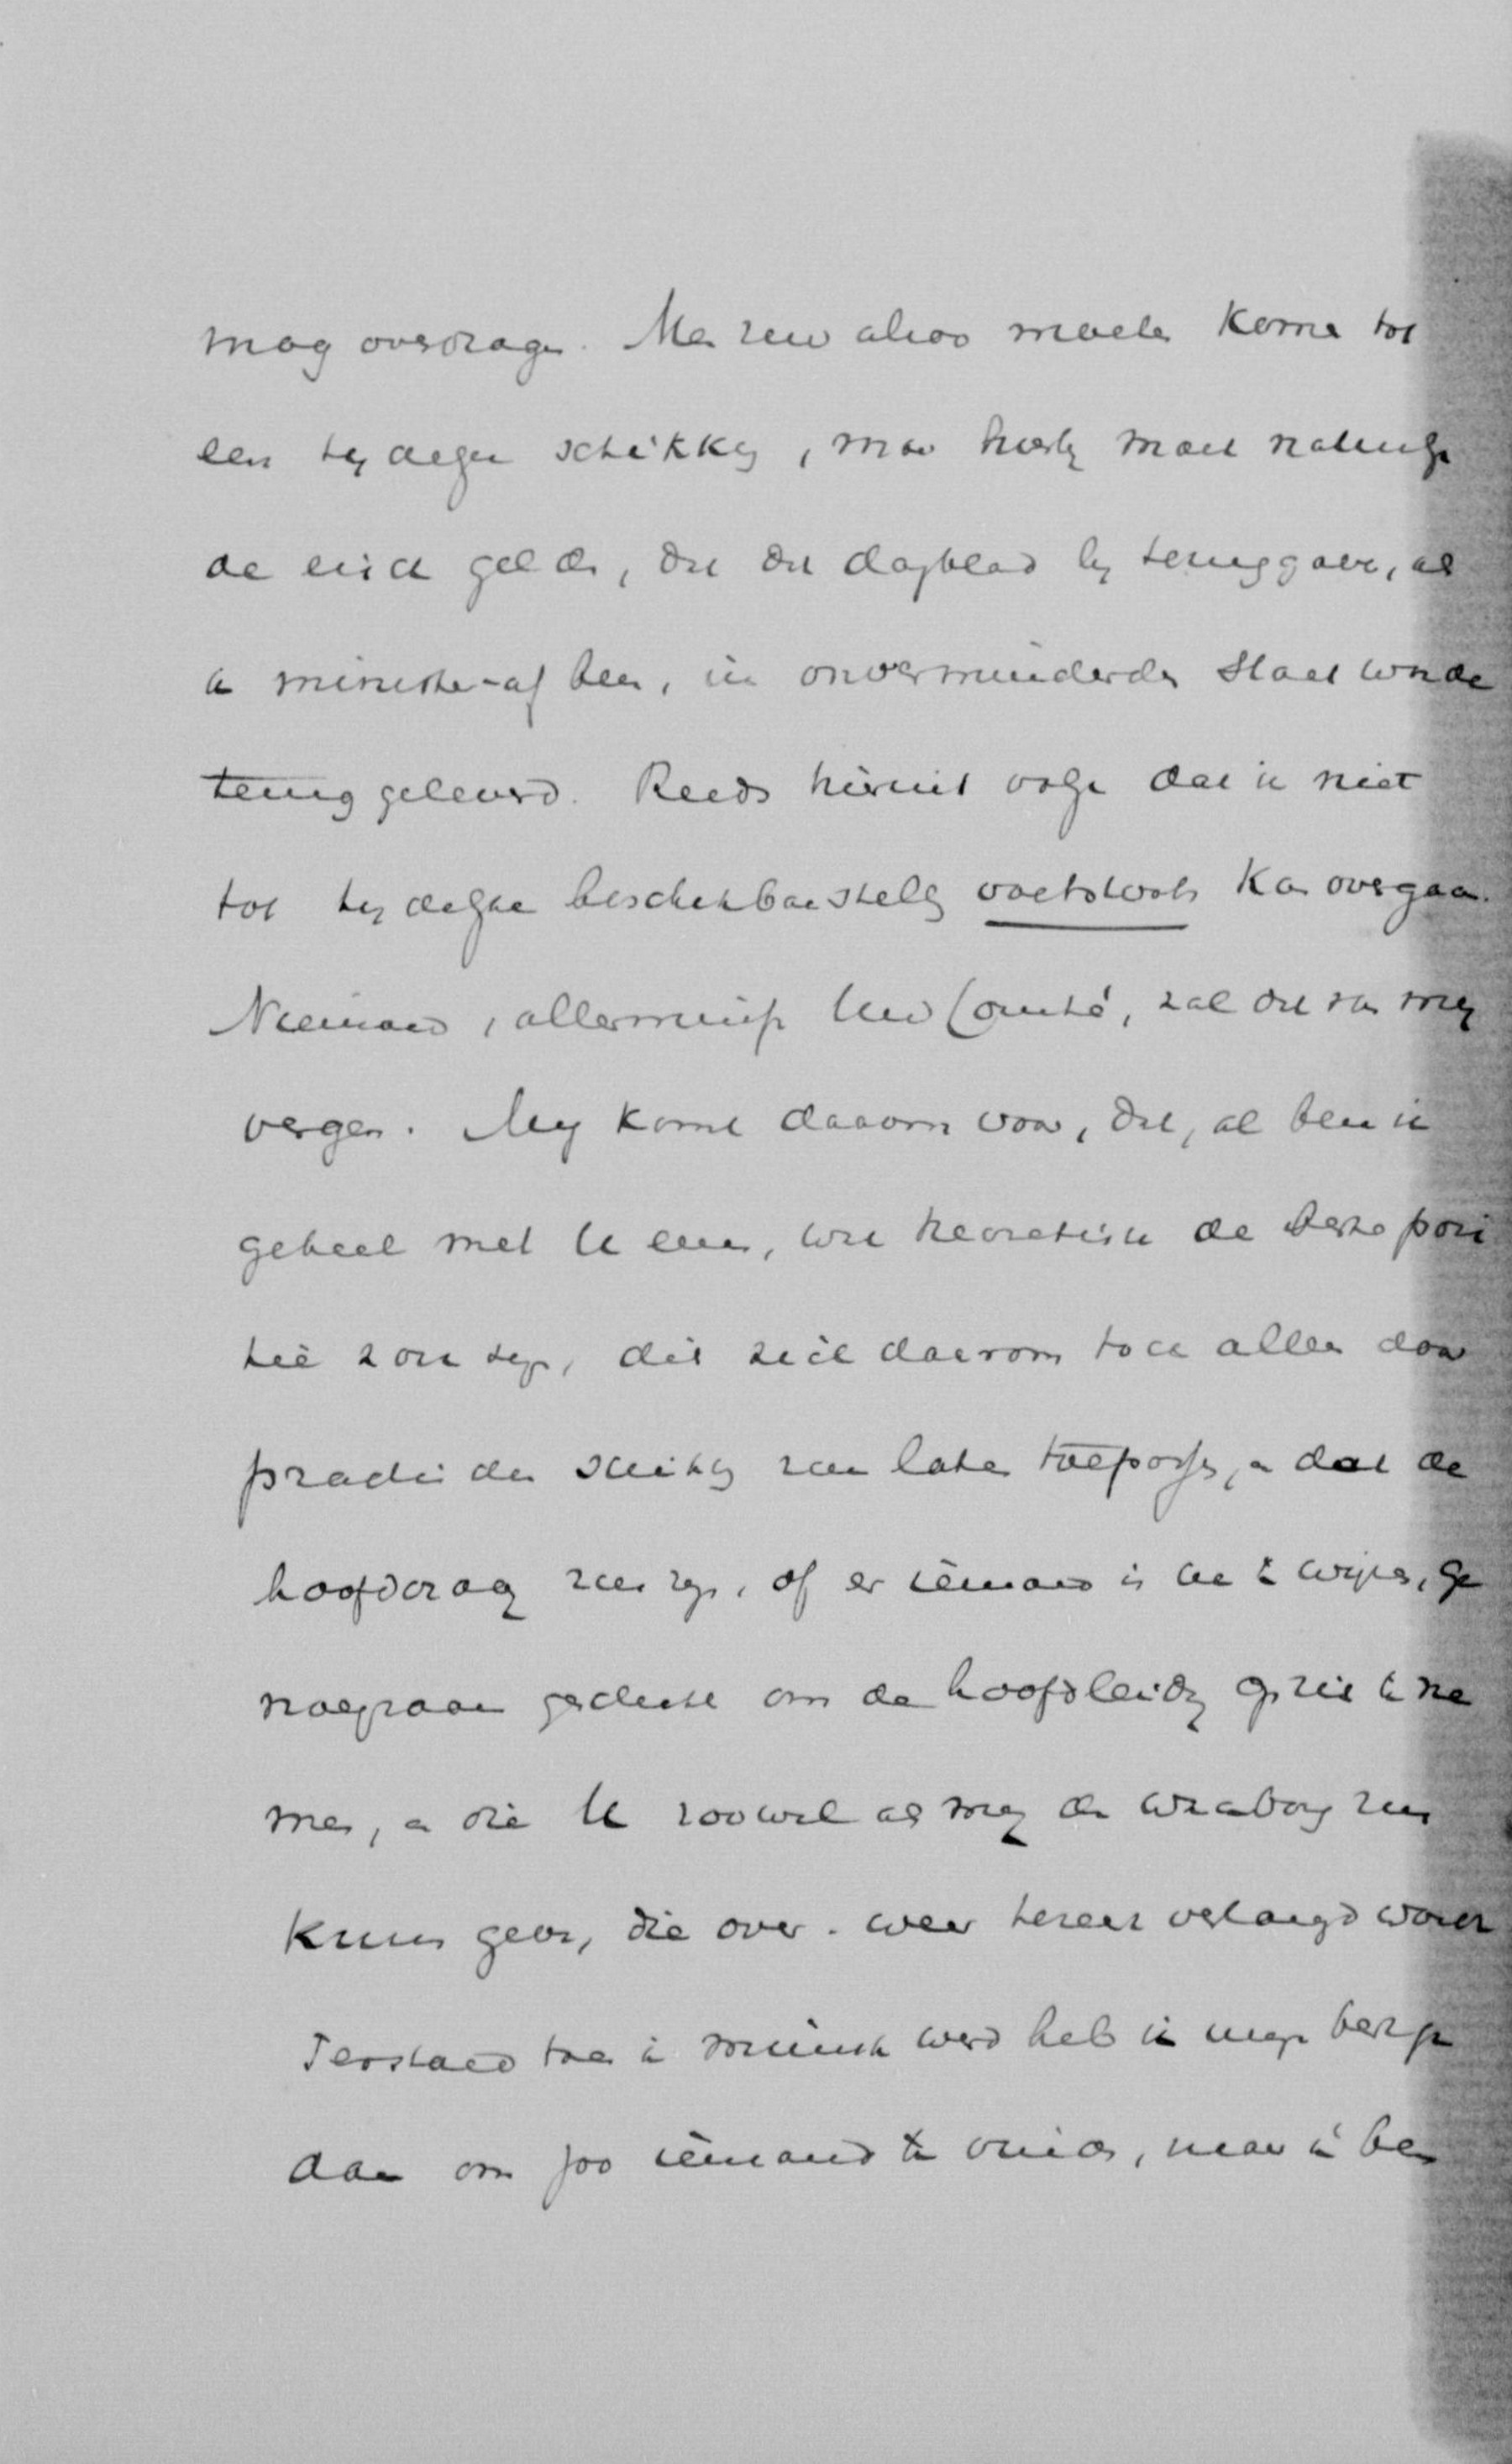 mag overdragen. Men zou alzoo moeten komen tot
een tijdelijke schikking, maar hierbij moet natuurlijk
de eisch gelden, dat dat dagblad bij teruggave, als
ik minister-af ben, in onverminderden staat worde
teruggeleverd. Reeds hieruit volgt dat ik niet
tot tijdelijke beschikbaarstelling voetstoots kan overgaan.
Niemand, allerminst Uw Comité, zal dit van mij
vergen. Mij komt daarom voor, dat, al ben ik
geheel met U eens, wat theoretisch de beste posi
tie zou zijn, dit zich daarom toch alleen door
practischen schikking zou laten toepassen, en dat de
hoofdvraag zou zijn, of er iemand is aan te wijzen, ge
noegzaam geschikt om de hoofdleiding op zich te ne
men, en die U zoowel als mij den waarborg zou
kunnen geven, die over en weer hierin verlangd wordt
Terstond toen ik minister werd heb ik mijn best ge
daan om zoo iemand te vinden, maar ik ben